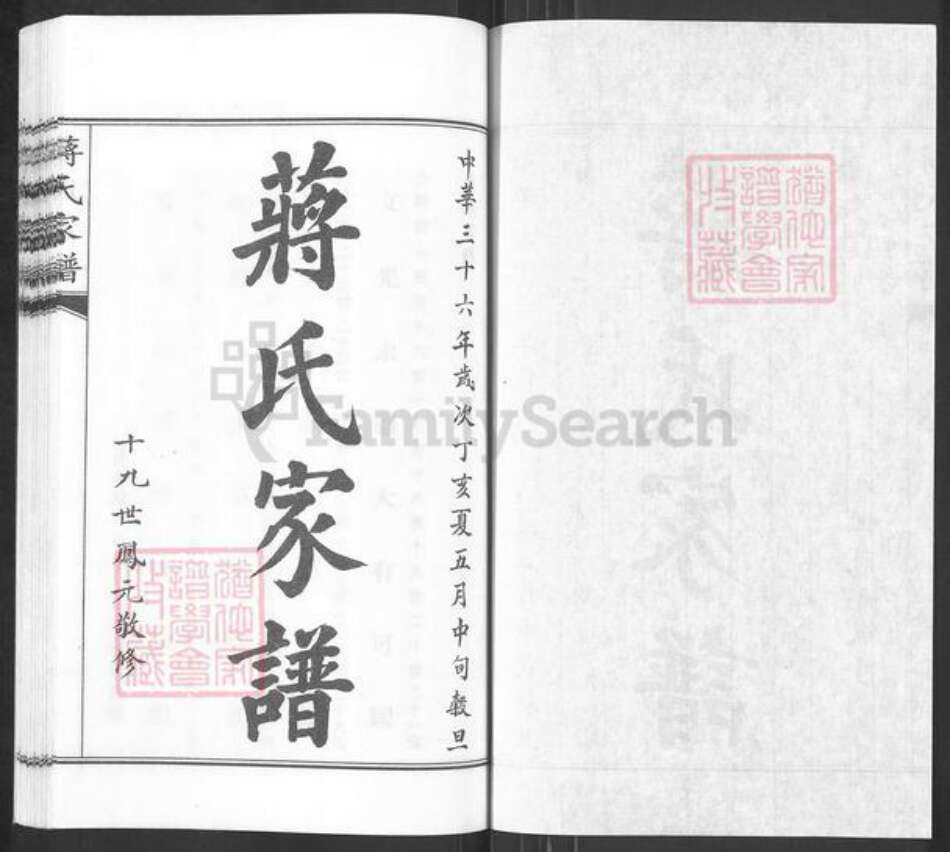 猶他家
譜學會
收藏
中華三十六年歲次丁亥夏五月中旬穀旦
蔣氏家譜
十九世鳳元敬修
猶他家
譜學會
收藏
蔣氏家譜
FamilySearch